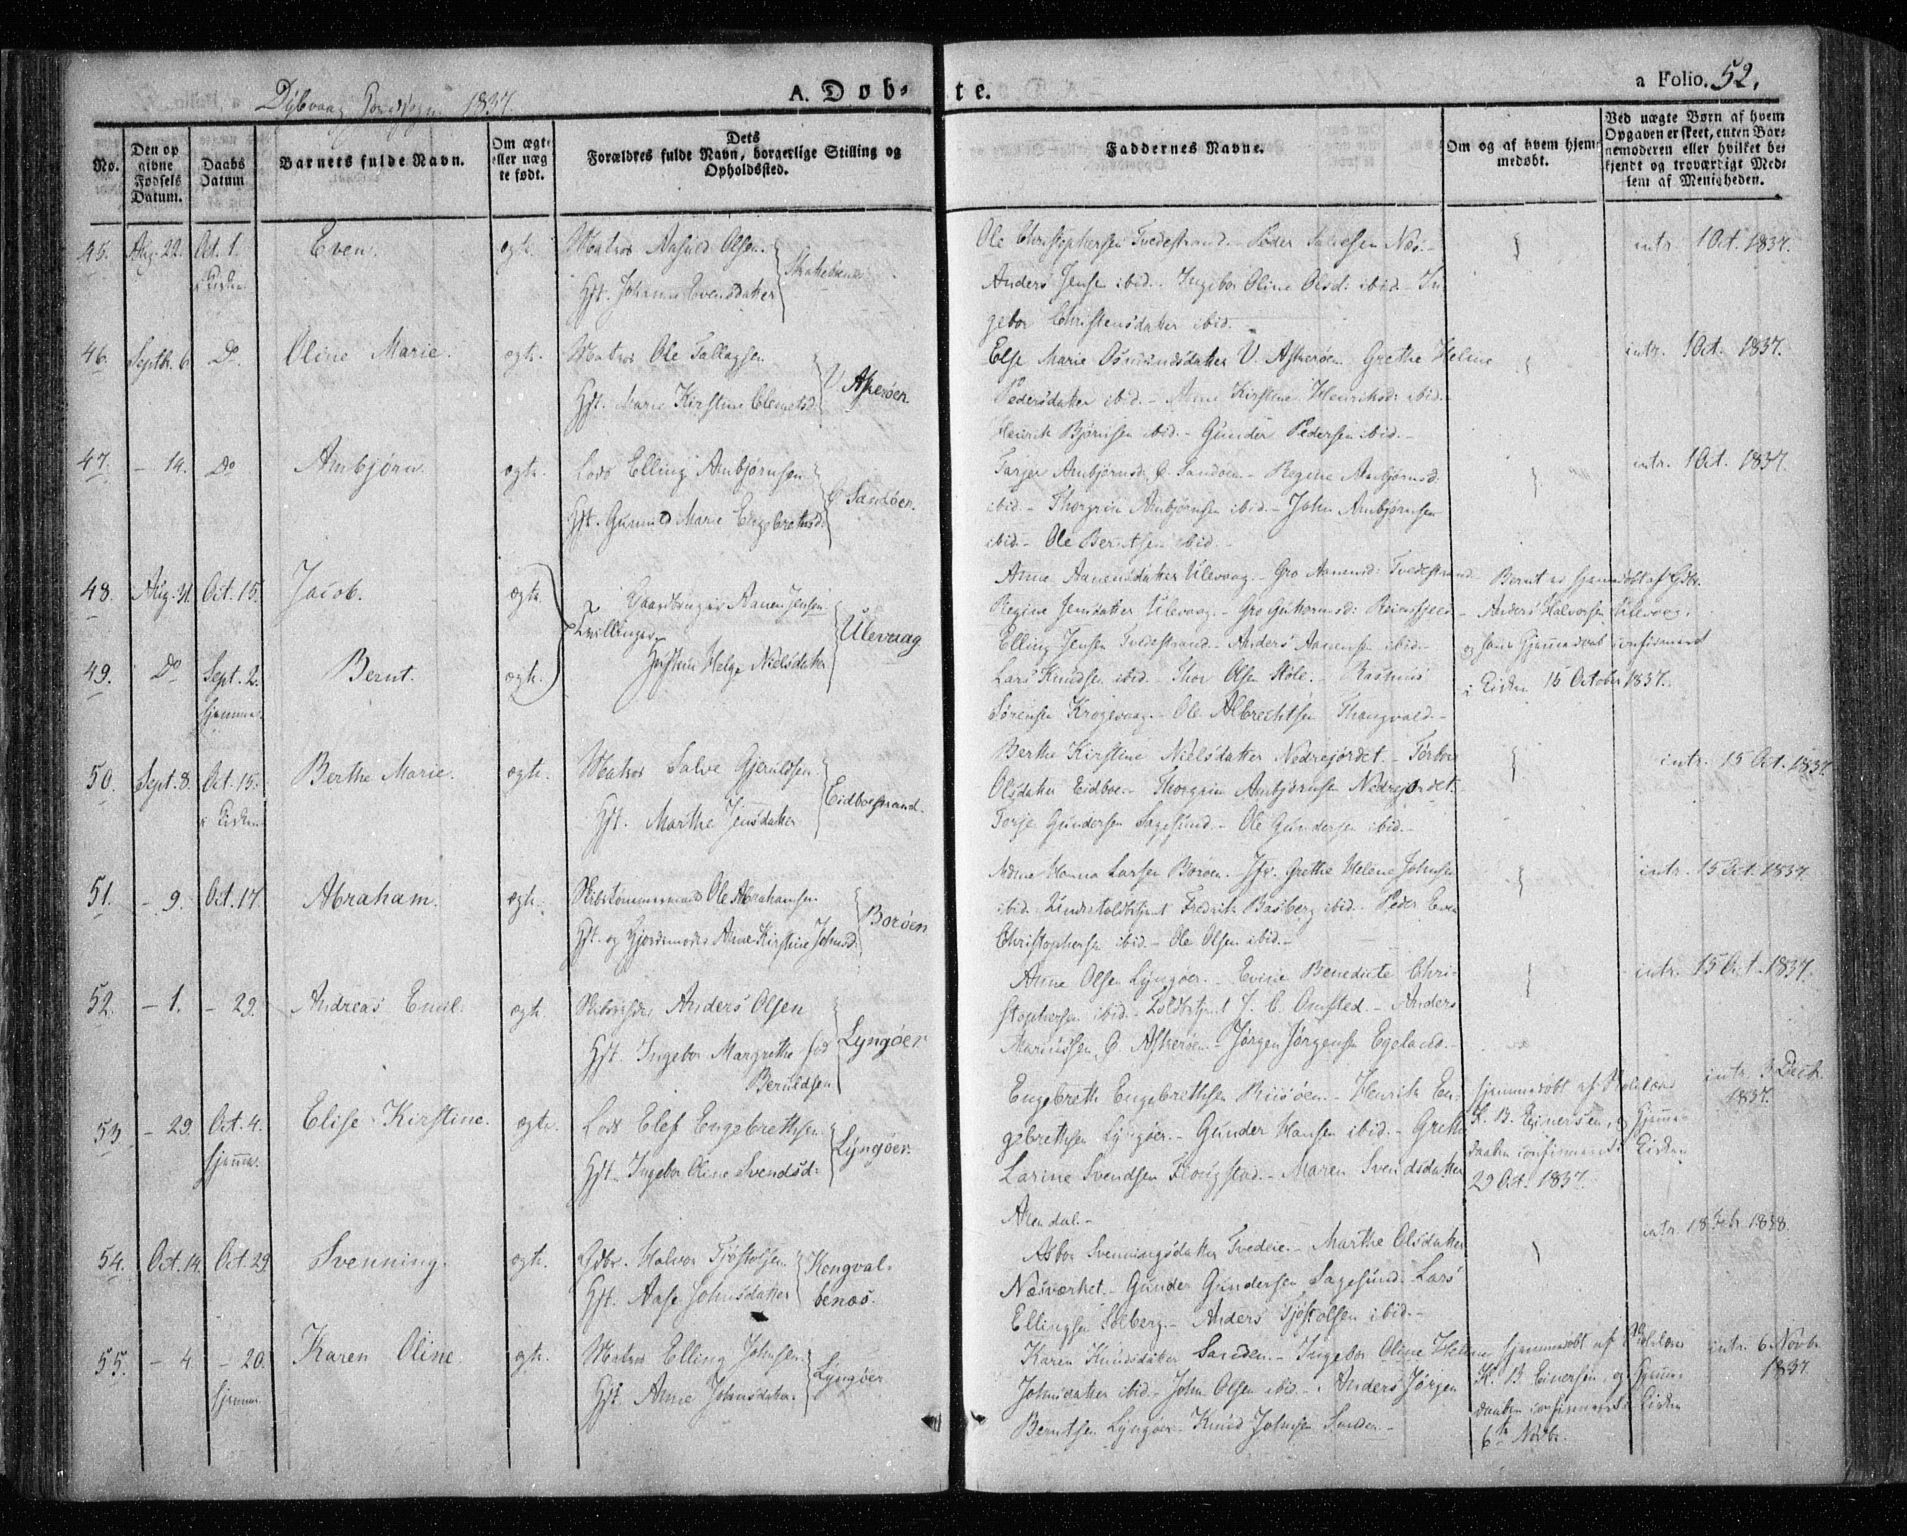 Dybvaag 1837.
A. Døb-
te.
a Folio. 52.
No.
Den op
givne
Fødsels
Datum.
Daabs
Datum
Barnets fulde Navn.
Om ægte
eller uæg
te født.
Dets
Forældres fulde Navn, borgerlige Stilling og
Opholdssted.
Faddernes Navne.
Om og af hvem hjem-
medøbt.
Ved uægte Børn af hvem
Opgaven er skeet, enten Bar-
nemoderen eller hvilket be-
kjendt og troværdigt Med-
lem af Menigheden.
45. Aug. 22. Oct. 1. Even. ægte. Matros Olsen
Hst. Johanne Evensdatter
Ole Christophersen Tvedestrand - Salvesen Næs -
Anders Jensen ibid. - Ingebor Oline Olsd: ibid - In
gebor Christensdatter ibid.
intr. 1 Oct. 1837.
46. Septbr. 6. Do Oline Marie. ægte. Matros Ole Tallagsen
Hst. Marie Kirstine Clemetsd. V. Askerøen
Else Marie Osmundsdatter V. Askerøen. Grethe Helene
Pedersdatter ibid. - Anne Kirstine Henriksd: ibid.
Henrik Bjørnsen ibid - Gunder Pedersen ibid. -
intr. 1 Oct. 1837.
47. - 14. Do Ambjørn. ægte. Lods Elling Ambjørnsen
Hst. Gunnild Marie Engebrethsd. Sandøen.
Tarjer Ambjørnsd. Sandøen - Regine Ambjørnsd.
ibid - Thorgrim Ambjørnsen ibid. - John Ambjørnsen
ibid - Ole Berntsen ibid. -
intr. 1 Oct. 1837.
48. Aug. 31. Oct. 15. Jacob. ægte.
Gaardbruger Aanen Jensen
Tvillinger
Hustru Helge Nielsdatter
Ulevaag
49. Do Sept. 2. Bernt. ægte.
hjemme.
Anne Aanensdatter Ulevaag - Gro Aanensd: Tvedestrand -
Regine Jensdatter Ulevaag. - Gro Guttormsd:
Elling Jensen Tvedestrand - Anders Aanensen ibid. -
Lars Knudsen ibid - Thor Olsen Støle. - Rasmus
Sørensen Krogevaag. - Ole Albrechtsen Thangvald -
Bernt er hjemmedøbt af
Anders Halvorsen Ulevaag.
og hans Hjemmedaab confirmeret
i Kirken 15 October 1837.
50. Sept. 8. Oct. 15. Berthe Marie. ægte. Matros Salve Gjeruldsen
i Kirken
Hst. Marthe Jensdatter Eidboestrand.
Berthe Kirstine Nielsdatter Nedrejordet - Torbor
Olsdatter Eidboe - Thorgrim Ambjørnsen Nedrejordet
Torje Gundersen Sagesund. - Ole Gundersen ibid. -
intr. 15 Oct. 1837.
51. - 9. Oct. 17. Abraham. ægte. Skibstømmermand Ole Abrahamsen
Hst. og Gjordemoder Anne Kirstine Johnsd: Borøen
Hanna Larsen Borøen. Jfr. Grethe Helene Johnsen
ibid. Fredrik Basberg ibid. - Peder Even
Christophersen ibid. - Ole Olsen ibid. -
intr. 15 Oct. 1837.
52. - 1. - 29. Andreas Emil. ægte. Anders Olsen
Hst. Ingebor Margrethe fød
Beruldsen
Lyngøer
Anne Olsen Lyngøer. - Evine Benedicte Chri-
stophersen ibid - J. C. Omsted. - Anders
Mariussen Askerøen - Jørgen Jørgensen Egeland. -
intr. 15 Oct. 1837.
53. - 29. Oct. 4. Elise Kirstine. ægte. Lods Elef Engebrethsen
hjemme.
Hst. Ingebor Oline Svendsd: Lyngøer.
Engebreth Engebrethsen Riisøen. - Henrik En-
gebrethsen Lyngøer. - Gunder Hansen ibid. - Grethe
Larine Svendsen Flougstad. - Maren Svendsdatter
Arendal. -
hjemmedøbt af
K. B. Einersen, og Hjemme-
daaben confirmeret i Kirken
29 Oct. 1837.
intr. 3 Decb.
1837.
54. Oct. 14. Oct. 29 Svenning. ægte. Gdbr. Halvor Tjøstolsen
Hst. Aase Johnsdatter
Kongval-
benæs.
Asbor Svenningsdatter Tvedeie. - Marthe Olsdatter
Næsværket - Gunder Gundersen Sagesund. Lars
Ellingsen Solberg. - Anders Tjøstolsen ibid. -
intr. 18 Febr 1838.
55. - 4. - 20. Karen Oline. ægte. Matros Elling Johnsen
hjemme.
Hst. Anne Johnsdatter. Lyngøer
Karen Knudsdatter Sanden. - Ingebor Oline Helene
Johnsdatter ibid - John Olsen ibid - Anders Jørgen
Berntsen Lyngøer - Knud Johnsen Sanden -
hjemmedøbt af
K. B. Einersen, og Hjemme-
daaben confirmeret i Kirken
6te Novbr.
intr. 6 Novbr
1837.